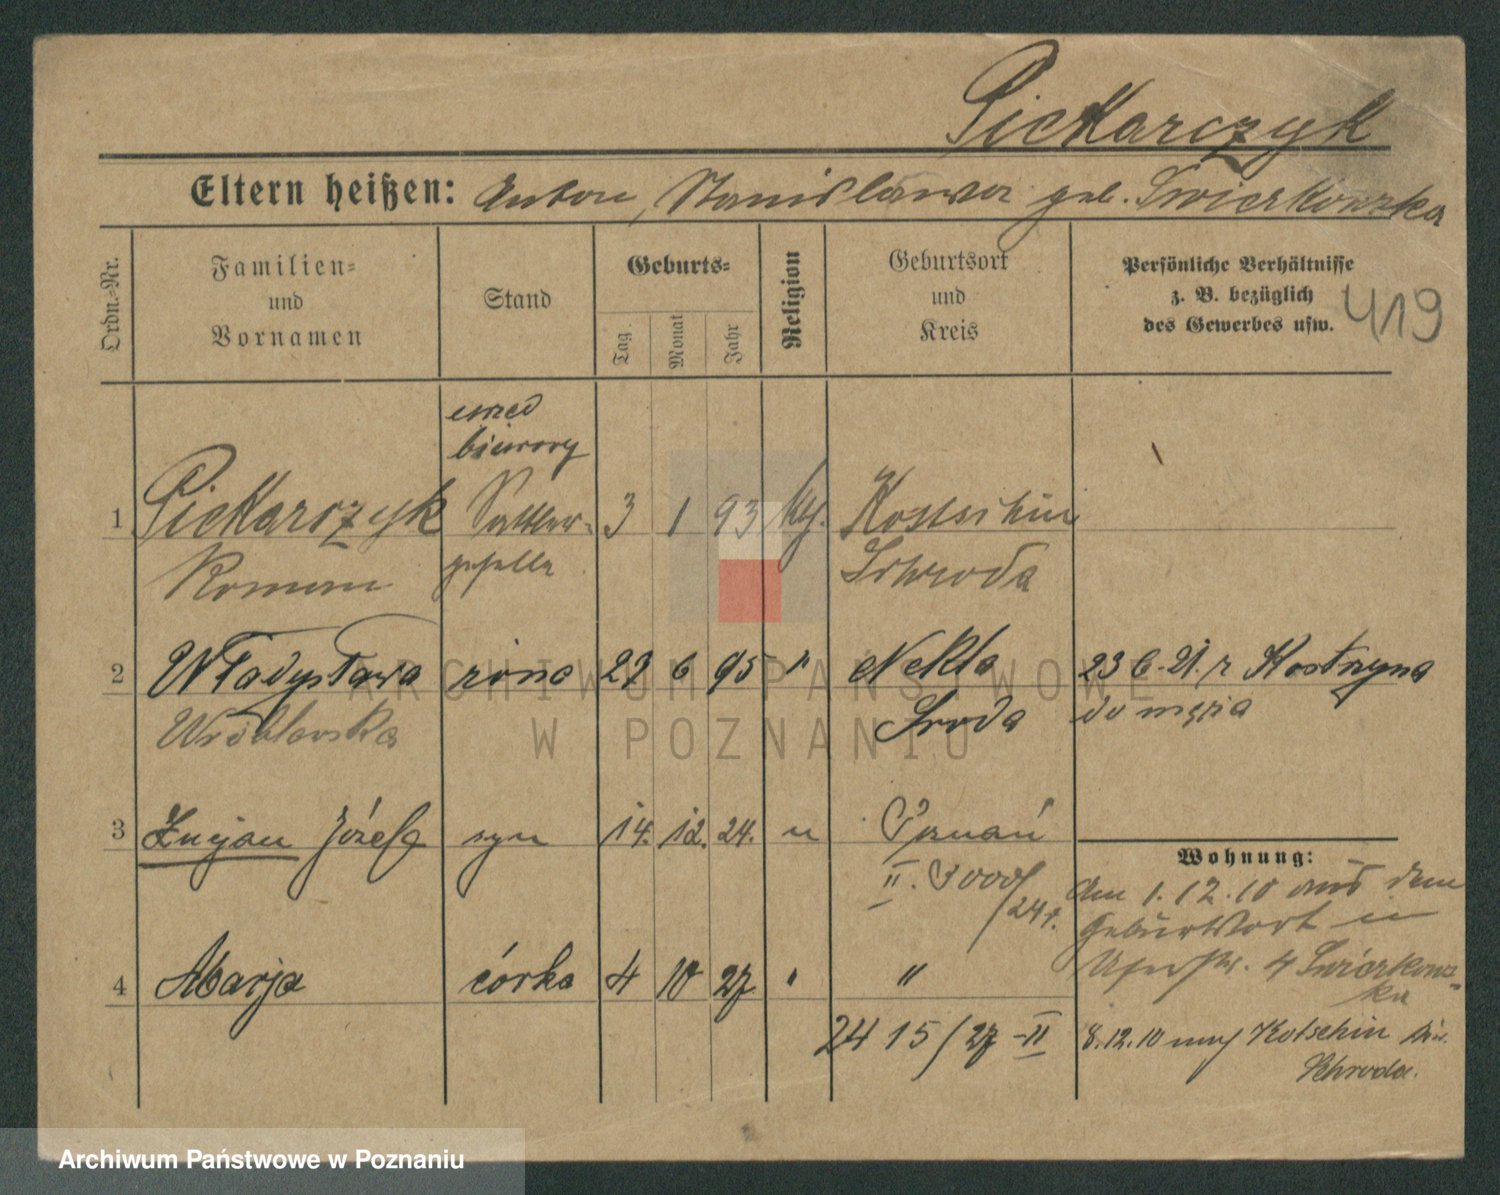 Piekarczyk
Eltern heißen: Anton, Stanislawa geb. Swierkowska
Ordn.-Nr.
Familien-
und
Vornamen
Stand
Geburts-
Tag.
Monat
Jahr
Religion
Geburtsort
und
Kreis
Persönliche Verhältnisse
z. B. bezüglich
des Gewerbes usw.
419
biurowy
1 Piekarczyk Sattler- 3 1 93 Kostschin
Roman geselle Schroda
2 Władysława żona 27 6 95 " Nekla 23 6. 21. z Kostrzyna
Wróblewska Sroda do męża
3 Lucjan Józef syn 14. 12. 24. " Poznań
II.
/24 r.
Wohnung:
Am 1. 12. 10 aus dem
Geburtsort in
4
4 Marja córka 4 10 27 " "
2415/27 - II
8.12.10 nach Kotschin Kr.
Schroda.
ARCHIWUM PAŃSTWOWE
W POZNANIU
Archiwum Państwowe w Poznaniu